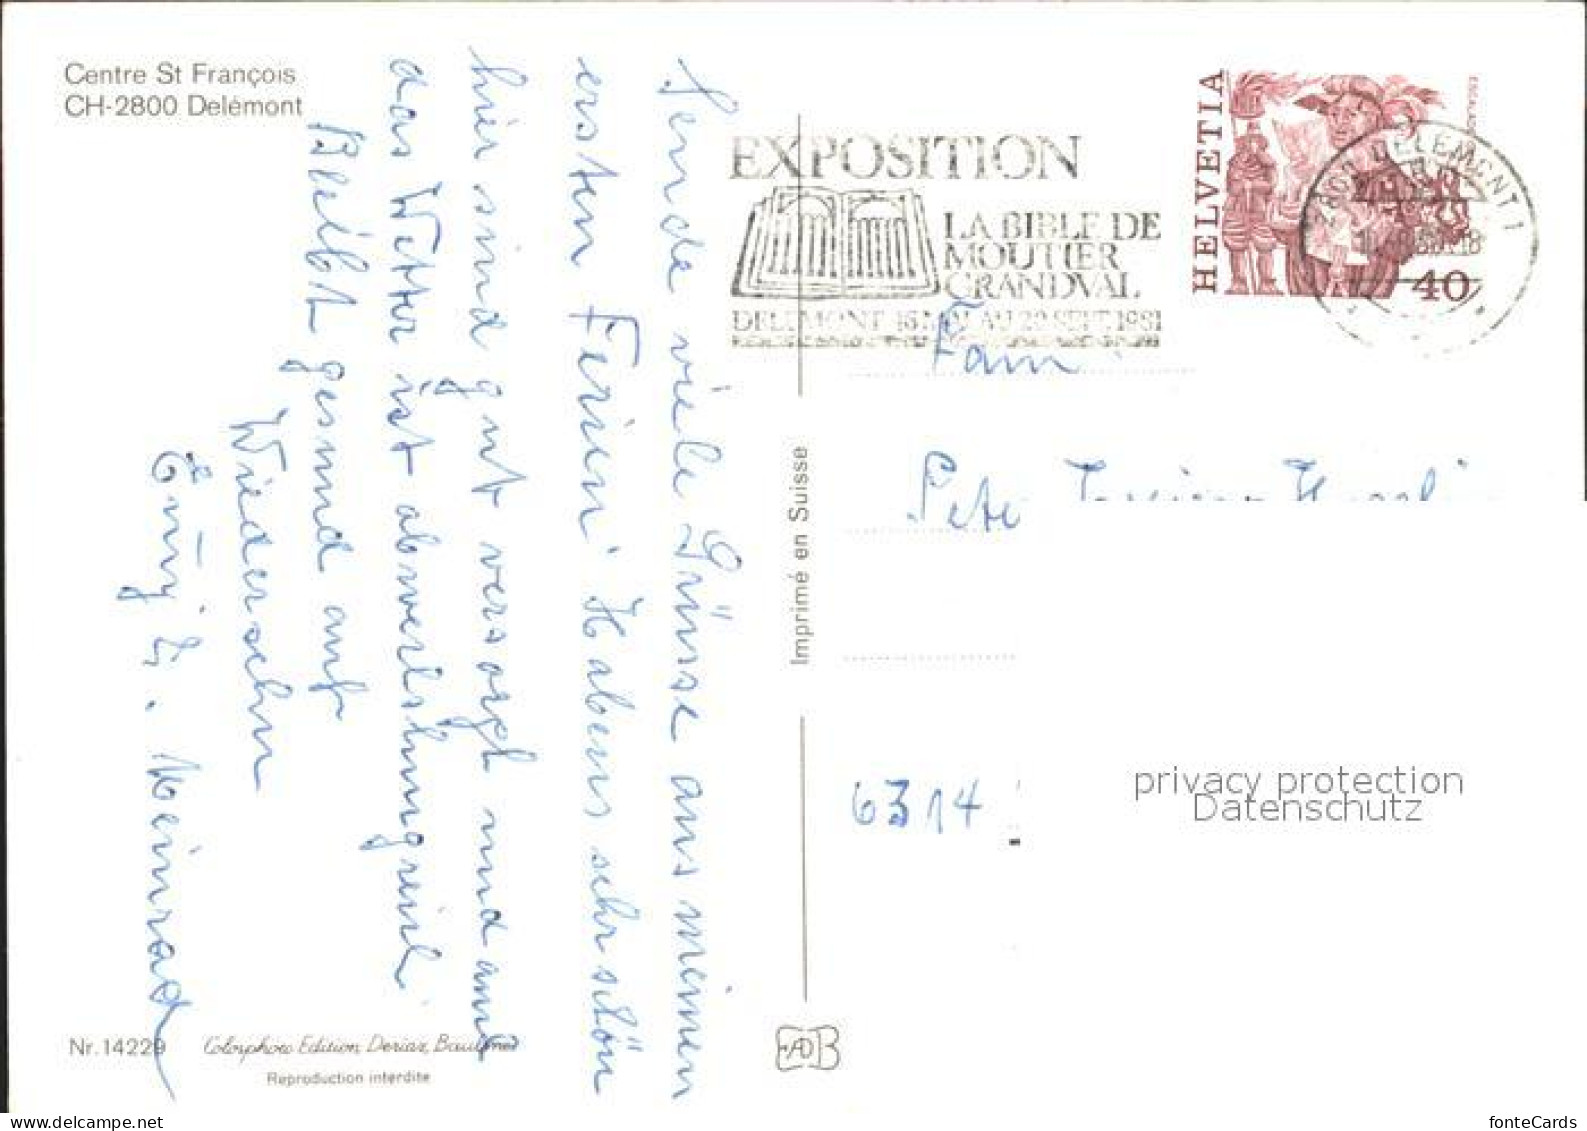 Centre St François
CH-2800 Delémont
Sende viele Grüsse aus meinen
ersten Ferien! Habens sehr schön
hier sind gut versorgt und auch
das Wetter ist abwechslungreich
Bleibt gesund auf
Wiedersehn
Meinrad
Nr. 14229
Colorphoto Edition, Deriaz, Baulmes
Reproduction interdite
Imprimé en Suisse
EXPOSITION
LA BIBLE DE
MOUTIER
GRANDVAL
DELEMONT 16 MAI AU 20 SEPT. 1981
HELVETIA
ESCALADE
40
2800 DELEMONT 1
Fam
6314
privacy protection
Datenschutz
fonteCards